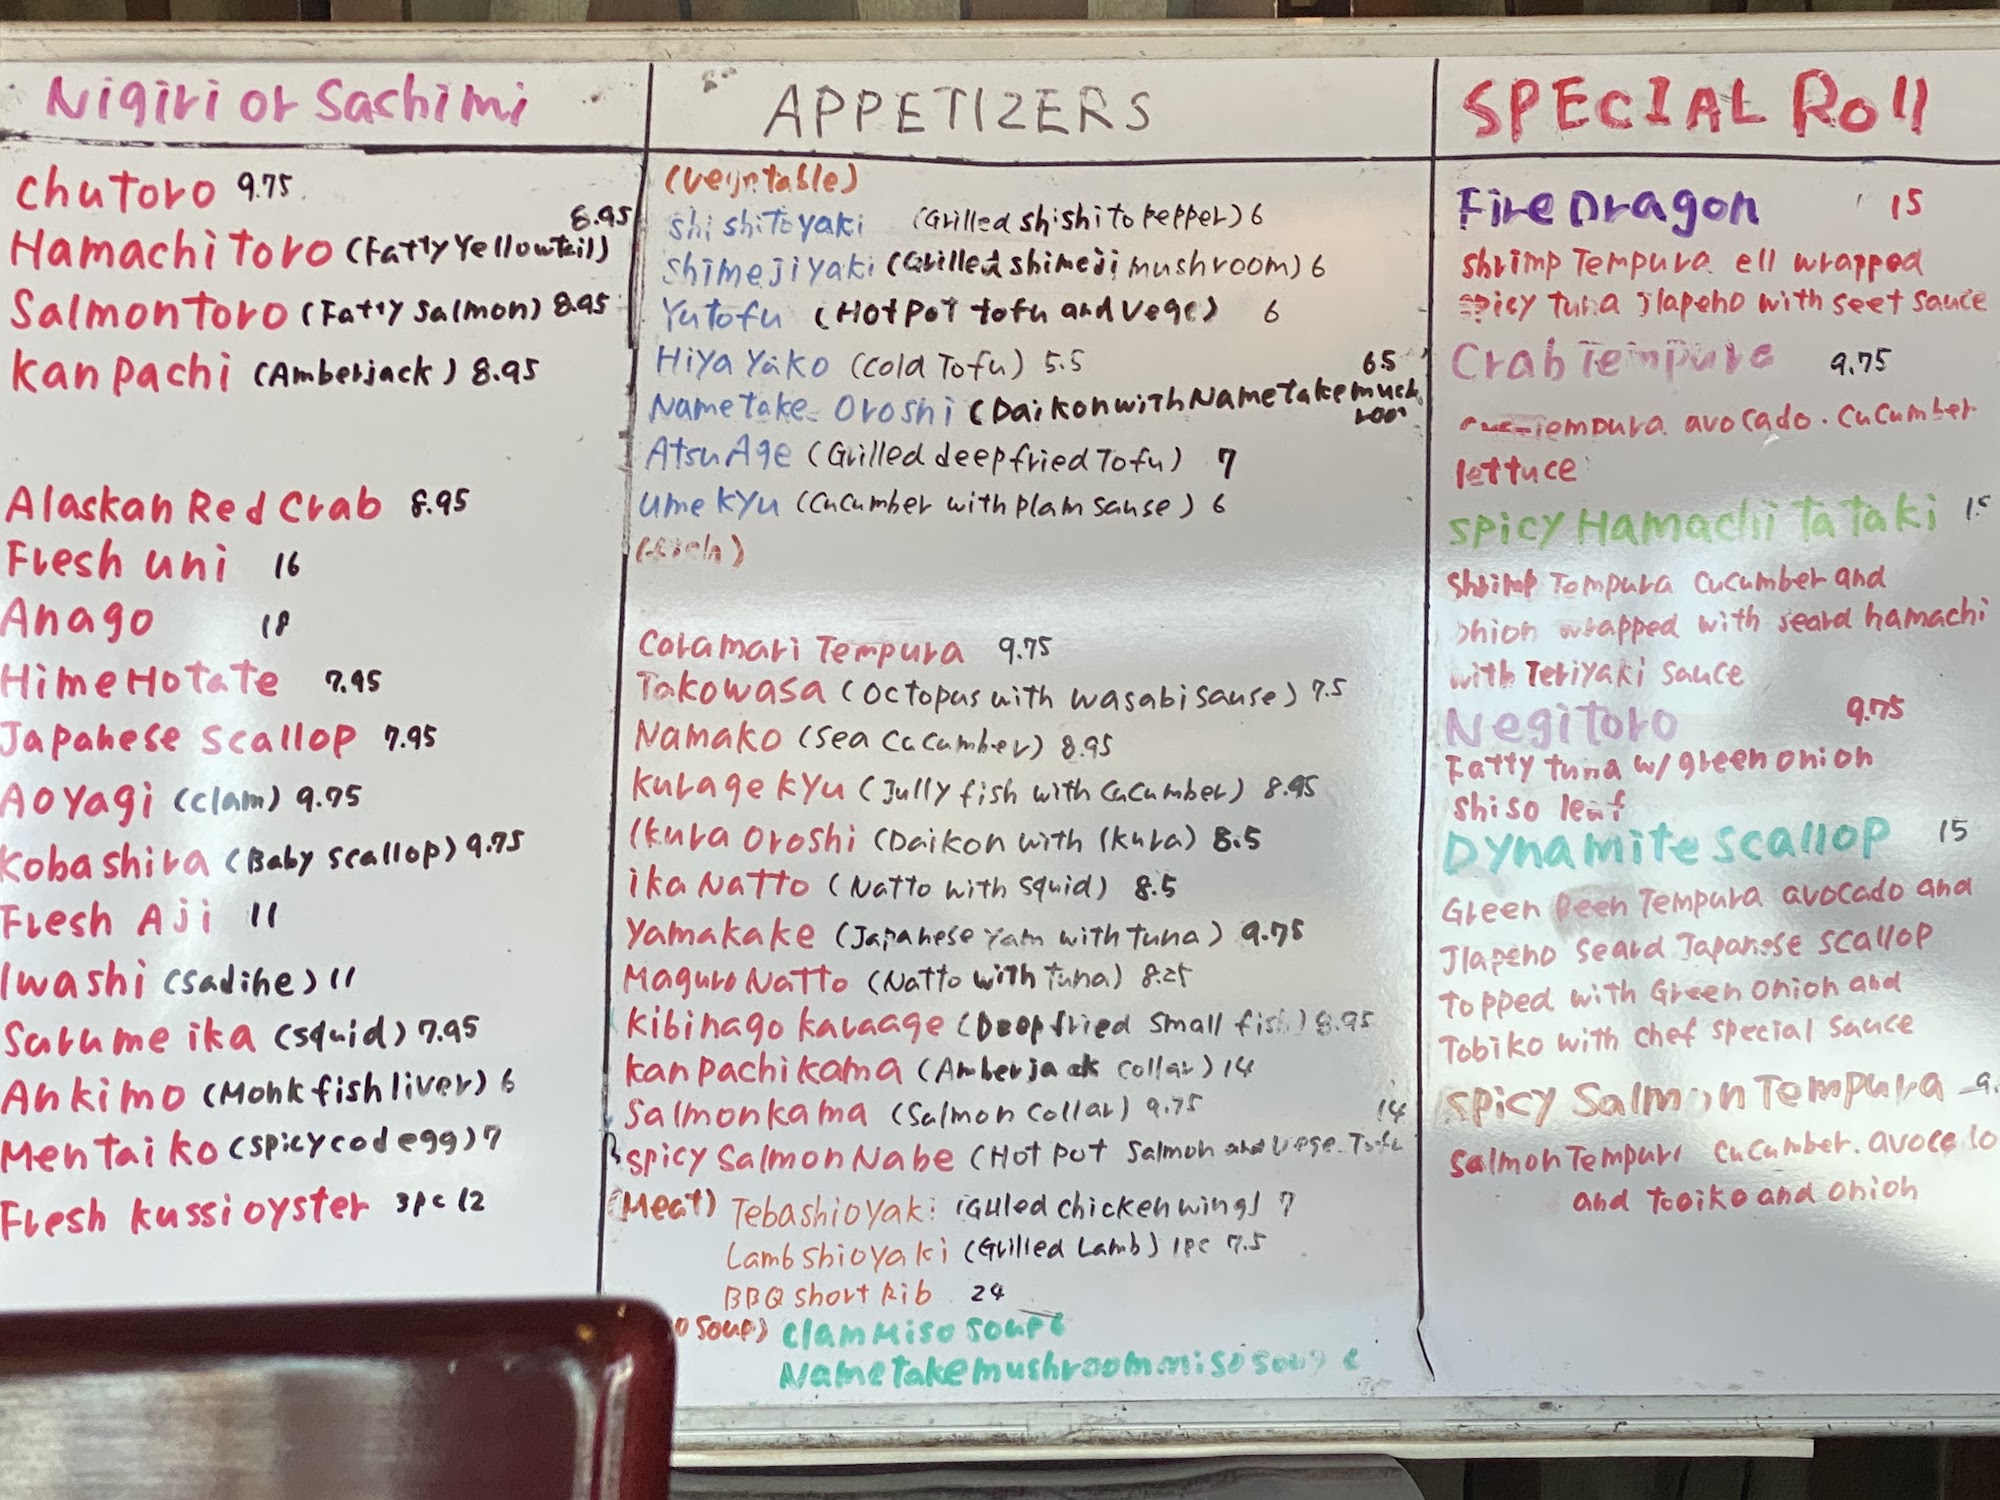 Nigiri or Sachimi
Chutoro 9.75
8.95
Hamachi toro (Fatty Yellowtail)
Salmon toro (Fatty Salmon) 8.95
Kanpachi (Amberjack) 8.95
Alaskan Red Crab 8.95
Fresh uni 16
Anago 18
Hime Hotate 7.95
Japanese scallop 7.95
Aoyagi (clam) 9.75
Kobashira (Baby scallop) 9.75
Fresh Aji 11
Iwashi (sadine) 11
Surume ika (squid) 7.95
Ankimo (Monk fish liver) 6
Mentaiko (spicy cod egg) 7
Fresh kussi oyster 3pc 12
APPETIZERS
(vegntable)
Shishitoyaki (Grilled shishito pepper) 6
Shimejiyaki (Grilled shimeji mushroom) 6
Yutofu (Hot Pot tofu and vege) 6
Hiya Yako (cold Tofu) 5.5
6.5
Nametake Oroshi (Daikon with Nametake much
room
Atsu Age (Grilled deep fried Tofu) 7
Ume Kyu (cucumber with plam sause) 6
Coramari Tempura 9.75
Takowasa (octopus with wasabi sause) 7.5
Namako (sea cucumber) 8.95
Kurage Kyu (Jully fish with cucumber) 8.95
Ikura Oroshi (Daikon with Ikura) 8.5
ika Natto (Natto with squid) 8.5
Yamakake (Japanese Yam with tuna) 9.75
Maguro Natto (Natto with tuna) 8.25
Kibinago karaage (Deep fried small fish) 8.95
kanpachi kama (Amberjack collar) 14
Salmon kama (Salmon collar) 9.75
14
Spicy Salmon Nabe (Hot pot salmon and vege. Tofu
(Meat) Tebashioyaki (Gulled chicken wing) 7
Lamb shioyaki (Grilled Lamb) 1pc 7.5
BBQ short Rib 24
o soup) Clam Miso soup 6
Nametake mushroom miso soup
SPECIAL Roll
Fire Dragon 15
shrimp Tempura ell wrapped
spicy tuna Jlapeno with seet sauce
Crab Tempura 9.75
Tempura avocado. cucumber
lettuce
Spicy Hamachi tataki 15
Shrimp Tempura cucumber and
onion wrapped with seard hamachi
with Teriyaki sauce
Negitoro 9.75
Fatty tuna w/ green onion
Shiso leaf
Dynamite scallop 15
Green Been Tempura avocado and
Jlapeno seard Japanese scallop
topped with Green onion and
Tobiko with chef special sauce
Spicy Salmon Tempura 9.
Salmon Tempura cucumber. avocado
and tobiko and onion